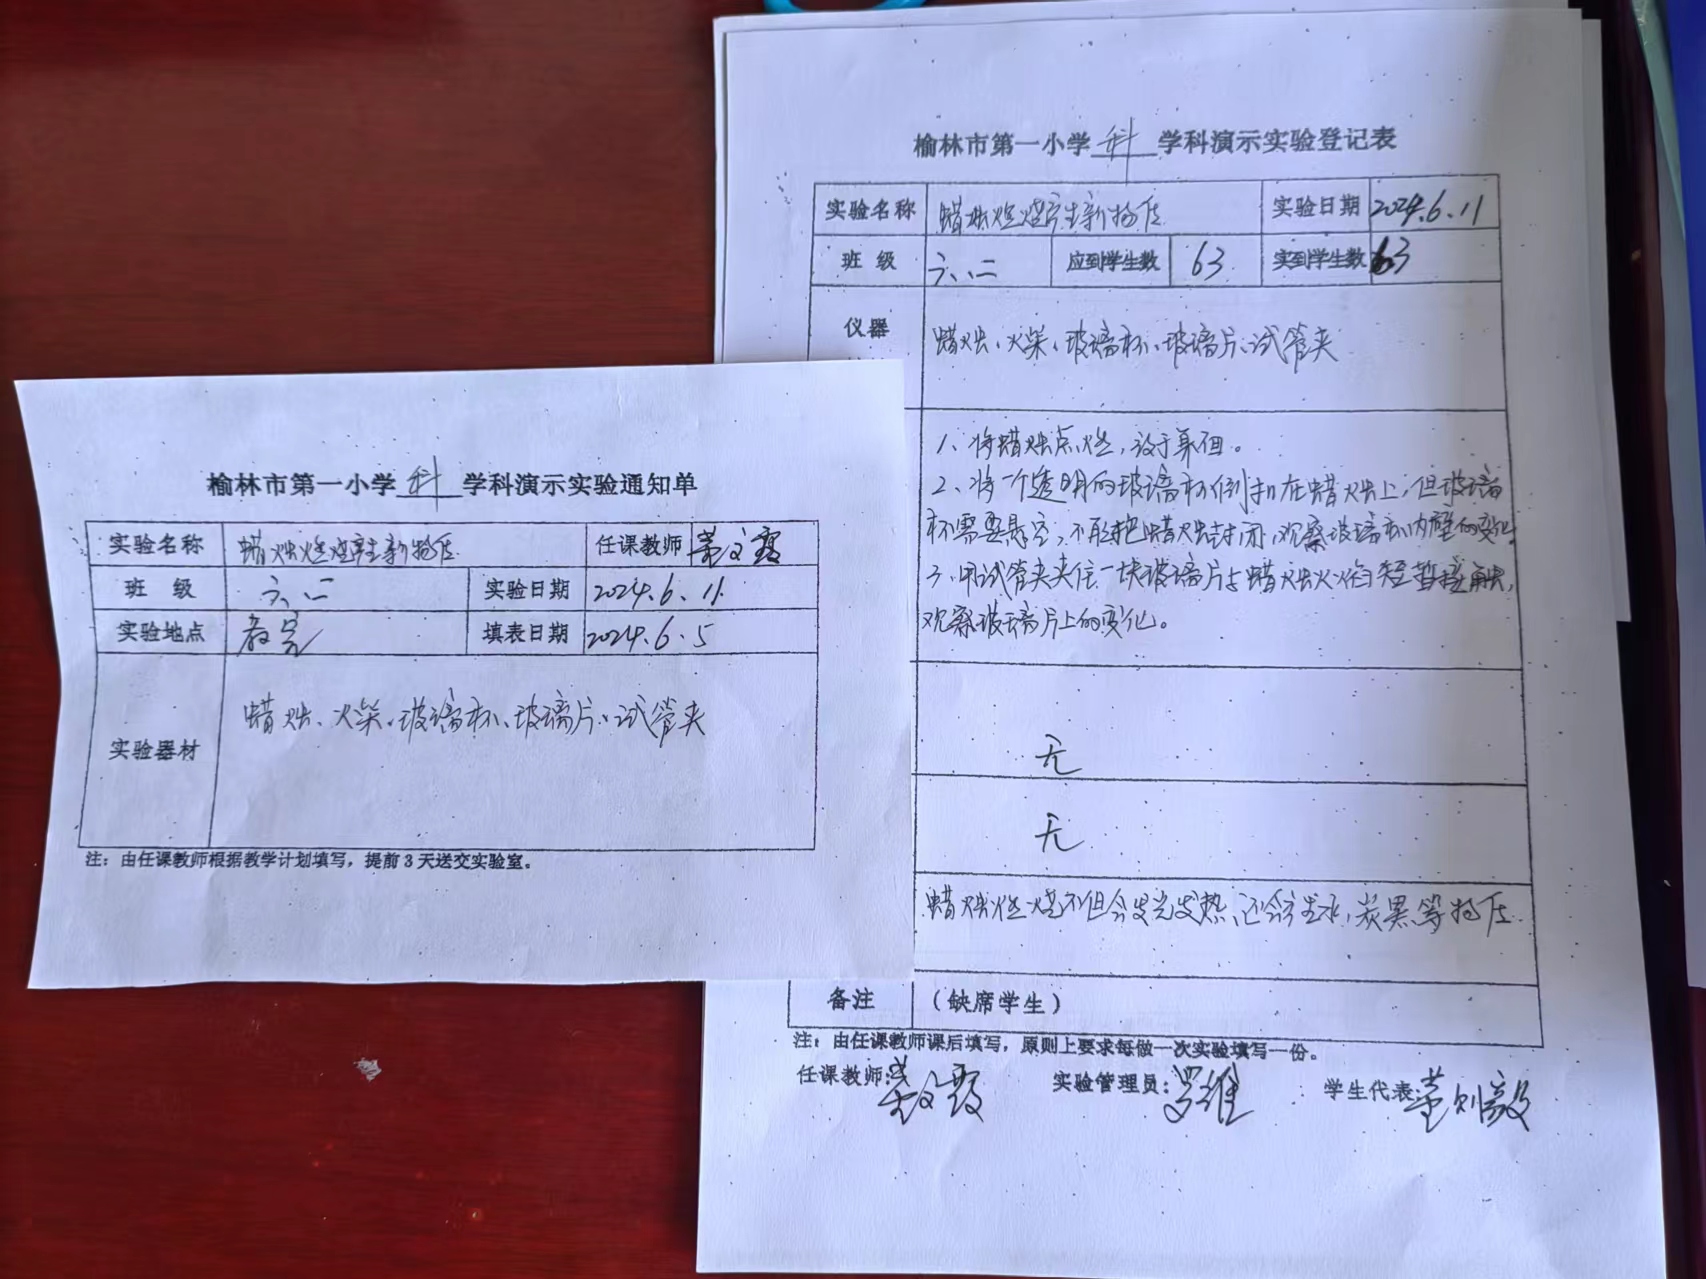 榆林市第一小学 科 学科演示实验通知单
实验名称 蜡烛燃烧产生新物质 任课教师
班 级 六、二 实验日期 2024.6.11.
实验地点 教室 填表日期 2024.6.5
实验器材 蜡烛、火柴、玻璃杯、玻璃片、试管夹
注：由任课教师根据教学计划填写，提前3天送交实验室。
榆林市第一小学 科 学科演示实验登记表
实验名称 蜡烛燃烧产生新物质 实验日期 2024.6.11
班 级 六、二 应到学生数 63 实到学生数 63
仪器 蜡烛、火柴、玻璃杯、玻璃片、试管夹
1、将蜡烛点燃，放于桌面。
2、将一个透明的玻璃杯倒扣在蜡烛上，但玻璃
杯需要悬空，不能把蜡烛封闭，观察玻璃杯内壁的变化。
3、用试管夹夹住一块玻璃片与蜡烛火焰短暂接触，
观察玻璃片上的变化。
无
无
蜡烛燃烧不但会发光发热，还会产生水，炭黑等物质
备注 （缺席学生）
注：由任课教师课后填写，原则上要求每做一次实验填写一份。
任课教师： 实验管理员：罗维 学生代表：